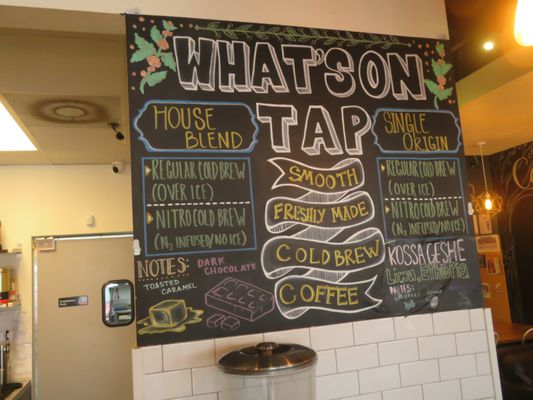 WHAT'S ON
TAP
HOUSE
BLEND
REGULAR COLD BREW
(OVER ICE)
NITRO COLD BREW
(N2 INFUSED/NO ICE)
NOTES:
DARK
CHOCOLATE
TOASTED
CARAMEL
SMOOTH
FRESHLY MADE
COLD BREW
COFFEE
SINGLE
ORIGIN
REGULAR COLD BREW
(OVER ICE)
NITRO COLD BREW
(N2 INFUSED/NO ICE)
KOSSAGESHE
Limu, Ethiopia
NOTES: